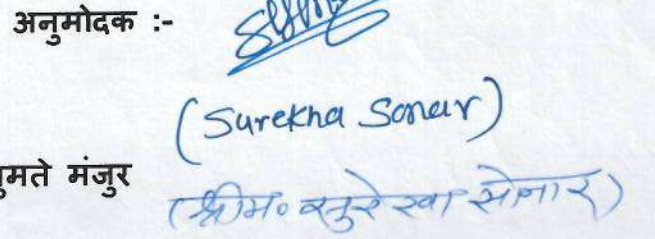 अनुमोदक :-
(Surekha Sonar)
ुमते मंजुर
(श्रीम० सुरेखा सोनार)